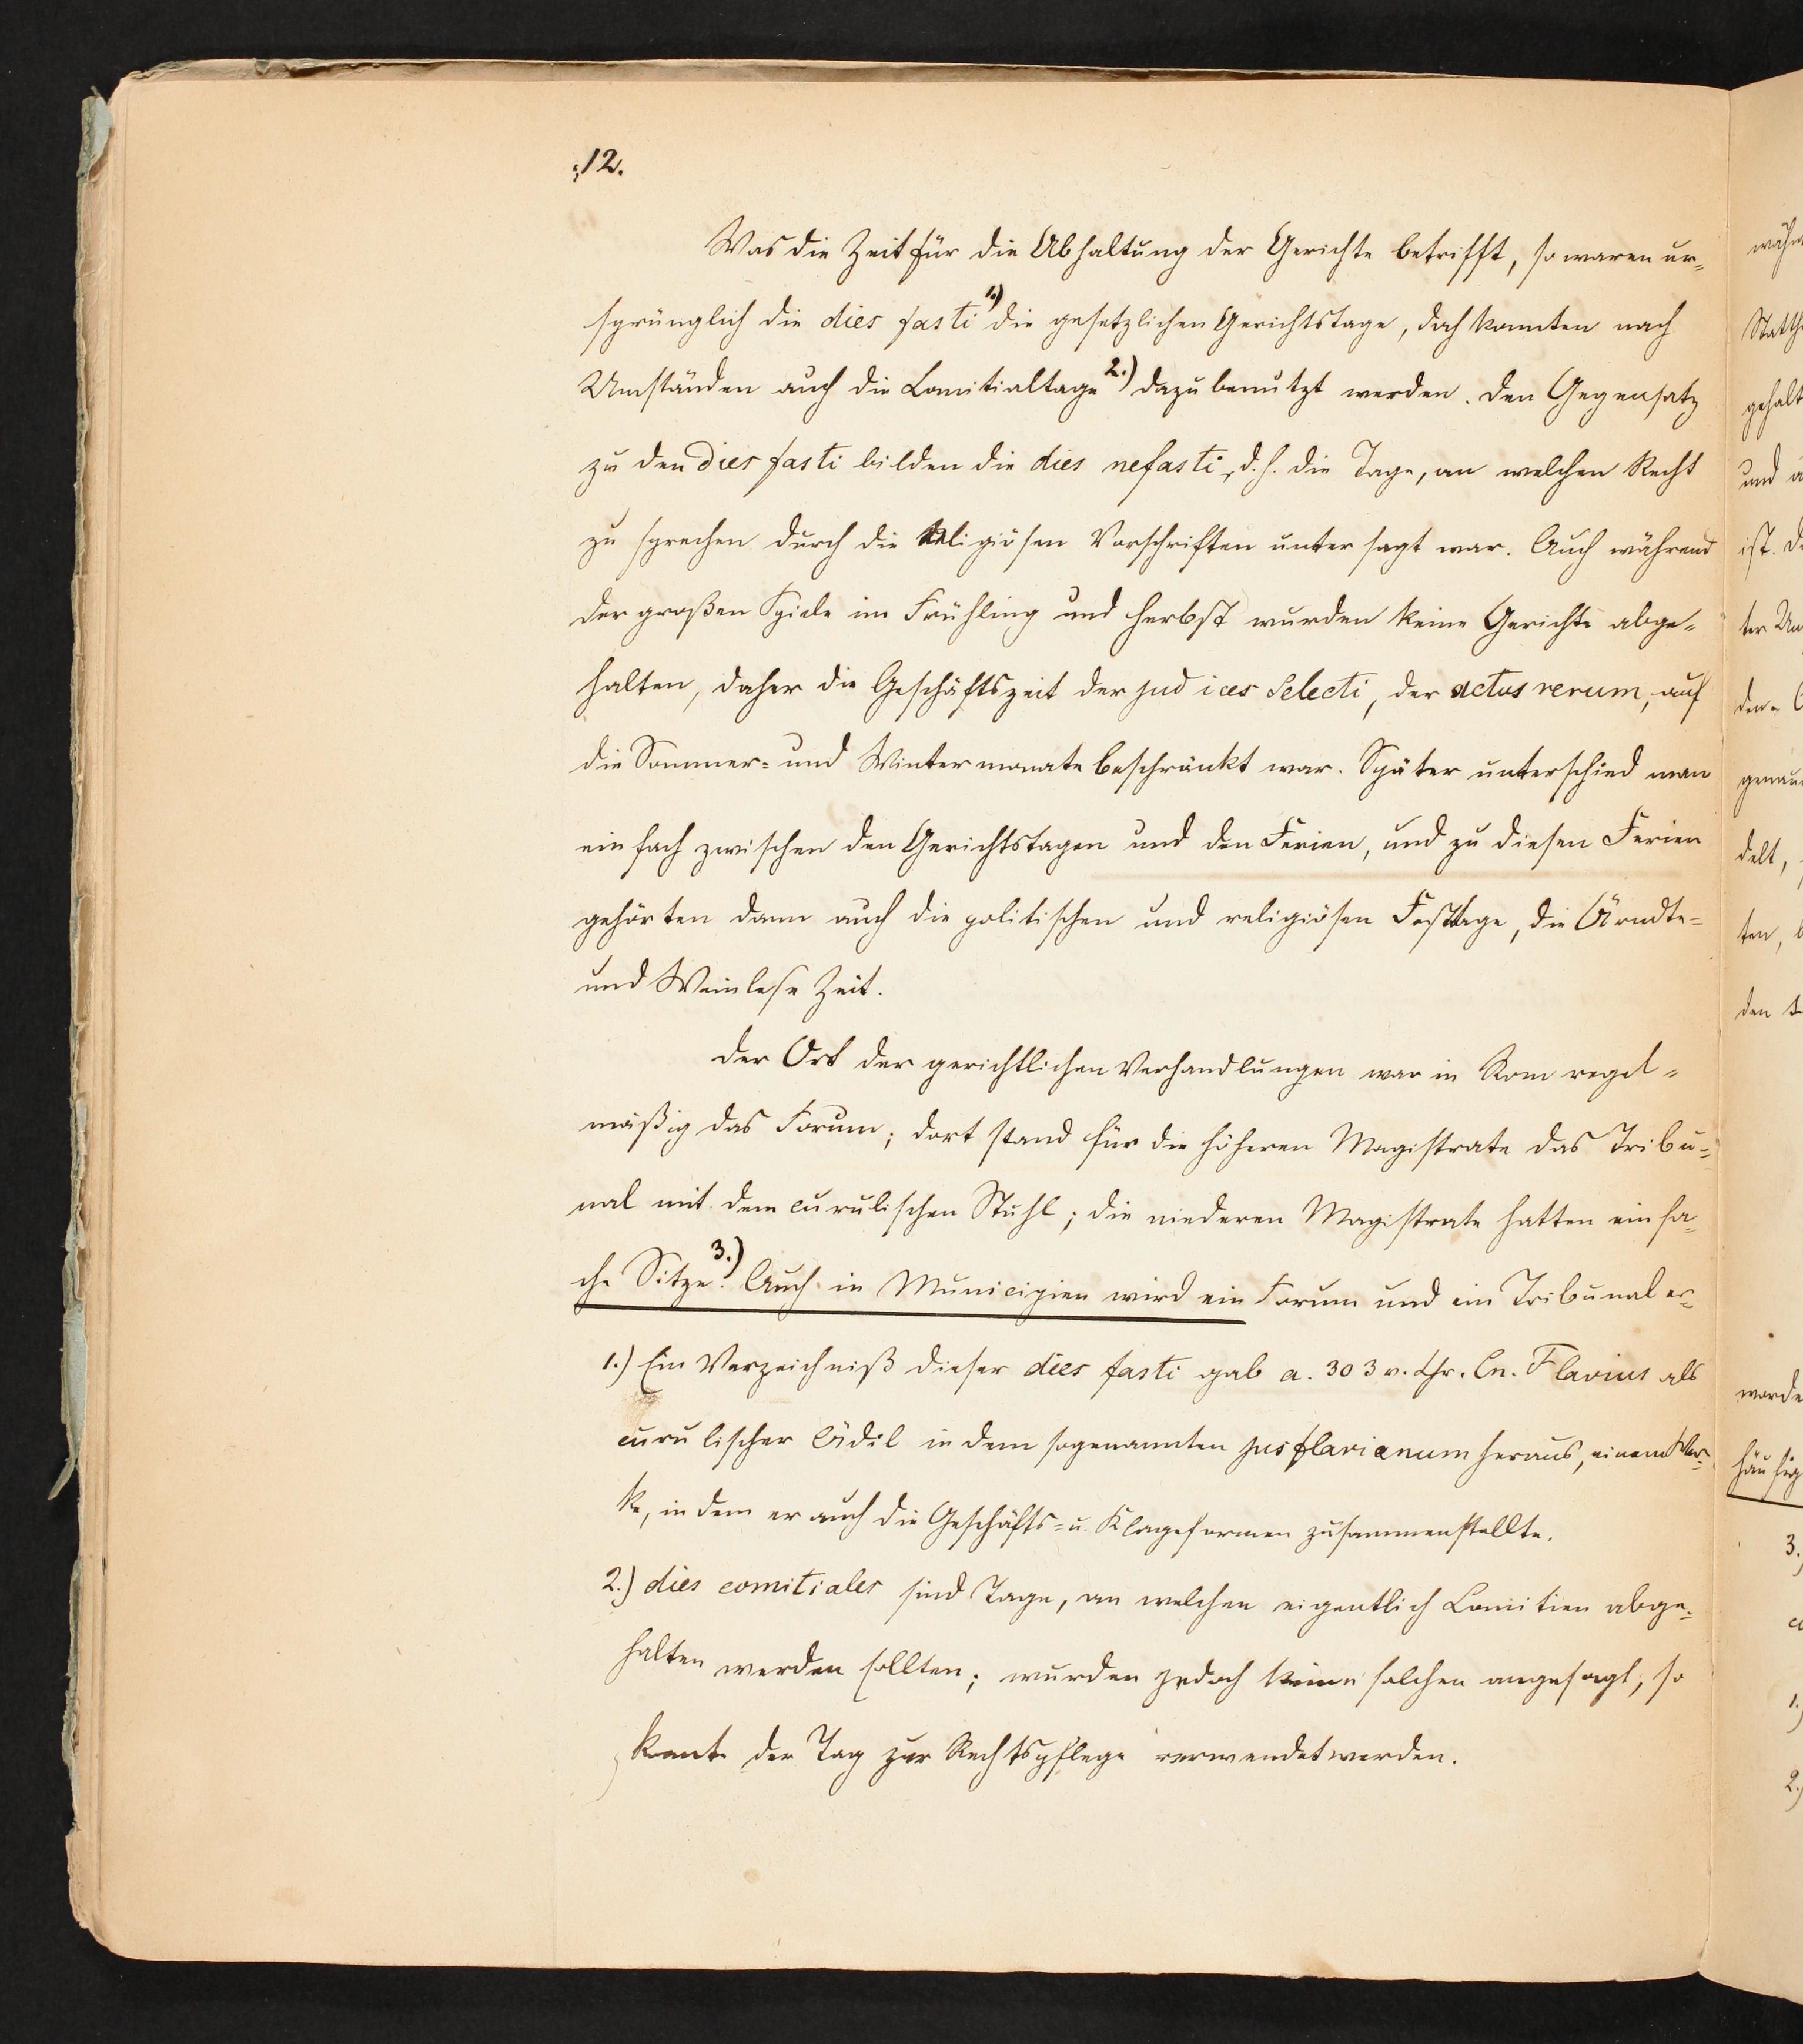 12.
Was die Zeit für die Abhaltung der Gerichte betrifft, so waren ur-
sprünglich die dies fasti 1.) die gesetzlichen Gerichtstage, doch konnten nach
Umständen auch die Comitialtage 2.) dazu benutzt werden. Den Gegensatz
zu den dies fasti bilden die dies nefasti, d. h. die Tage, an welchen Recht
zu sprechen durch die religiösen Vorschriften untersagt war. Auch während
der großen Spiele im Frühling und Herbst wurden keine Gerichte abge-
halten, daher die Geschäftszeit der judices selecti, der actus rerum, auf
die Sommer- und Wintermonate beschränkt war. Später unterschied man
einfach zwischen den Gerichtstagen und den Ferien, und zu diesen Ferien
gehörten dann auch die politischen und religiösen Festtage, die Ärndte-
und Weinlese Zeit.
Der Ort der gerichtlichen Verhandlungen war in Rom regel-
mäßig das Forum; dort stand für die höheren Magistrate das Tribu-
nal mit dem curulischen Stuhl; die niederen Magistrate hatten einfa-
che Sitze. 3.) Auch in Municipien wird ein Forum und ein Tribunal er-
1.) Ein Verzeichniß dieser dies fasti gab a. 303 v. Chr. Cn. Flavius als
curulischer Ädil in dem sogenannten jus flavianum heraus, einem Wer-
ke, in dem er auch die Geschäfts- u. Klageformen zusammenstellte.
2.) dies comitiales sind Tage, an welchen eigentlich Comitien abge-
halten werden sollten; wurden jedoch keine solchen angesagt, so
konnte der Tag zur Rechtspflege verwendet werden.